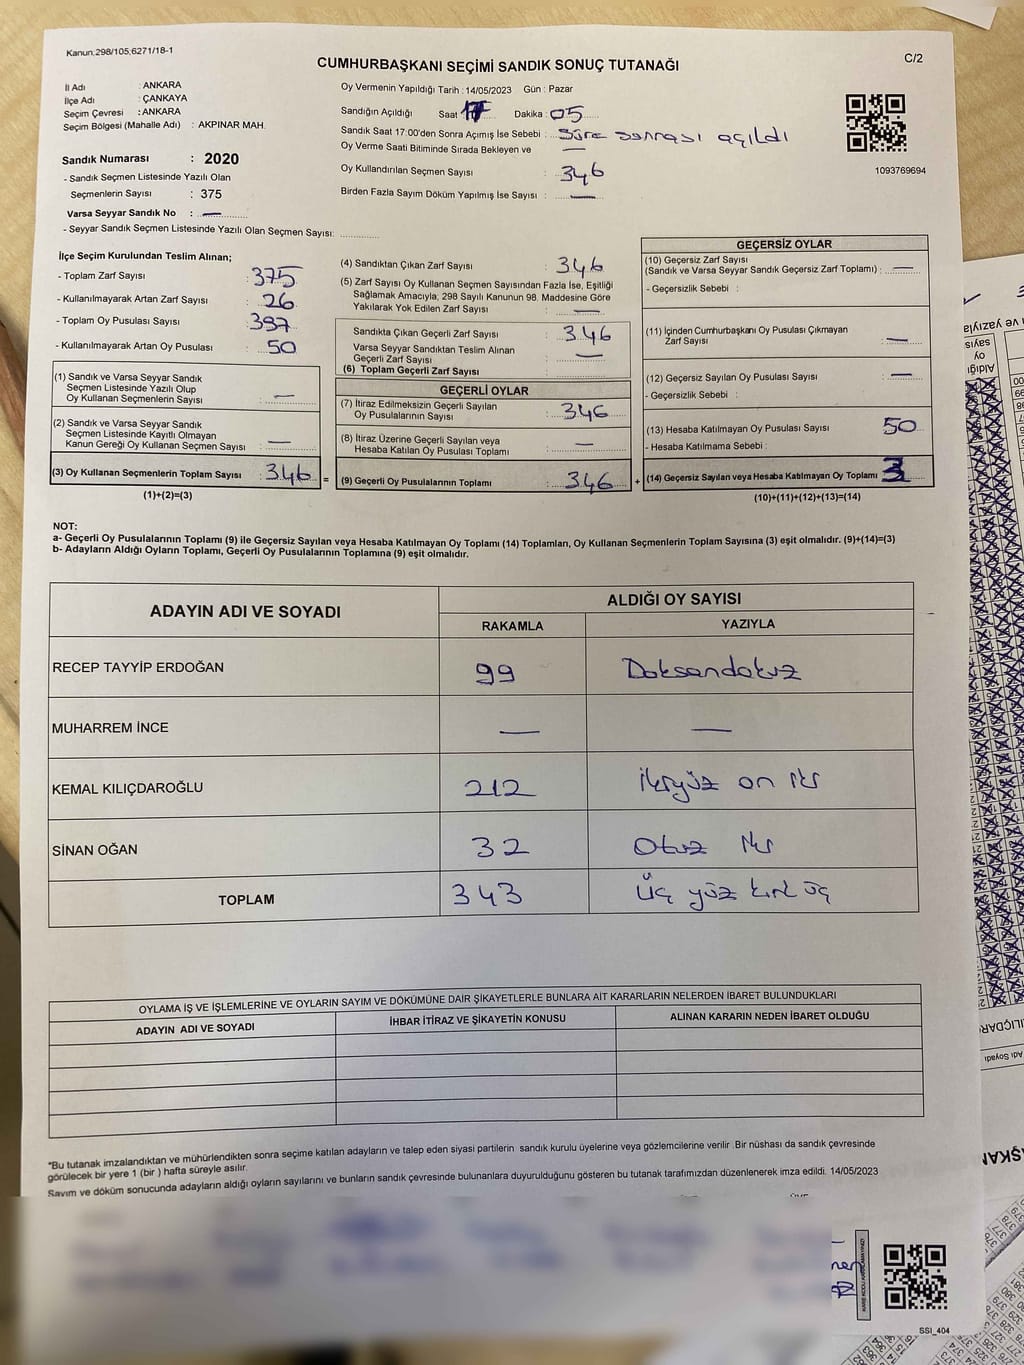 Kanun.298/105,6271/18-1
CUMHURBAŞKANI SEÇİMİ SANDIK SONUÇ TUTANAĞI
C/2
İl Adı : ANKARA
İlçe Adı : ÇANKAYA
Seçim Çevresi : ANKARA
Seçim Bölgesi (Mahalle Adı) : AKPINAR MAH.
Oy Vermenin Yapıldığı Tarih : 14/05/2023 Gün : Pazar
Sandığın Açıldığı Saat 17 Dakika : 05
Sandık Saat 17:00'den Sonra Açımış İse Sebebi : Süre sonrası açıldı
Oy Verme Saati Bitiminde Sırada Bekleyen ve —
Oy Kullandırılan Seçmen Sayısı : 346
Birden Fazla Sayım Döküm Yapılmış İse Sayısı : —
1093769694
Sandık Numarası : 2020
- Sandık Seçmen Listesinde Yazılı Olan
Seçmenlerin Sayısı : 375
Varsa Seyyar Sandık No : —
- Seyyar Sandık Seçmen Listesinde Yazılı Olan Seçmen Sayısı: ............
İlçe Seçim Kurulundan Teslim Alınan;
- Toplam Zarf Sayısı : 375
- Kullanılmayarak Artan Zarf Sayısı : 26
- Toplam Oy Pusulası Sayısı : 397
- Kullanılmayarak Artan Oy Pusulası : 50
(1) Sandık ve Varsa Seyyar Sandık
Seçmen Listesinde Yazılı Olup
Oy Kullanan Seçmenlerin Sayısı : —
(2) Sandık ve Varsa Seyyar Sandık
Seçmen Listesinde Kayıtlı Olmayan
Kanun Gereği Oy Kullanan Seçmen Sayısı : —
(3) Oy Kullanan Seçmenlerin Toplam Sayısı : 346 =
(1)+(2)=(3)
(4) Sandıktan Çıkan Zarf Sayısı : 346
(5) Zarf Sayısı Oy Kullanan Seçmen Sayısından Fazla İse, Eşitliği
Sağlamak Amacıyla, 298 Sayılı Kanunun 98. Maddesine Göre
Yakılarak Yok Edilen Zarf Sayısı : —
Sandıkta Çıkan Geçerli Zarf Sayısı : 346
Varsa Seyyar Sandıktan Teslim Alınan
Geçerli Zarf Sayısı : —
(6) Toplam Geçerli Zarf Sayısı :
GEÇERLİ OYLAR
(7) İtiraz Edilmeksizin Geçerli Sayılan
Oy Pusulalarının Sayısı : 346
(8) İtiraz Üzerine Geçerli Sayılan veya
Hesaba Katılan Oy Pusulası Toplamı : —
(9) Geçerli Oy Pusulalarının Toplamı : 346 +
GEÇERSİZ OYLAR
(10) Geçersiz Zarf Sayısı
(Sandık ve Varsa Seyyar Sandık Geçersiz Zarf Toplamı) : —
- Geçersizlik Sebebi :
(11) İçinden Cumhurbaşkanı Oy Pusulası Çıkmayan
Zarf Sayısı : —
(12) Geçersiz Sayılan Oy Pusulası Sayısı : —
- Geçersizlik Sebebi :
(13) Hesaba Katılmayan Oy Pusulası Sayısı : 50
- Hesaba Katılmama Sebebi :
(14) Geçersiz Sayılan veya Hesaba Katılmayan Oy Toplamı : 3
(10)+(11)+(12)+(13)=(14)
NOT:
a- Geçerli Oy Pusulalarının Toplamı (9) ile Geçersiz Sayılan veya Hesaba Katılmayan Oy Toplamı (14) Toplamları, Oy Kullanan Seçmenlerin Toplam Sayısına (3) eşit olmalıdır. (9)+(14)=(3)
b- Adayların Aldığı Oyların Toplamı, Geçerli Oy Pusulalarının Toplamına (9) eşit olmalıdır.
ADAYIN ADI VE SOYADI
ALDIĞI OY SAYISI
RAKAMLA YAZIYLA
RECEP TAYYİP ERDOĞAN 99 Doksandokuz
MUHARREM İNCE — —
KEMAL KILIÇDAROĞLU 212 ikiyüz on iki
SİNAN OĞAN 32 Otuz iki
TOPLAM 343 Üç yüz kırk üç
OYLAMA İŞ VE İŞLEMLERİNE VE OYLARIN SAYIM VE DÖKÜMÜNE DAİR ŞİKAYETLERLE BUNLARA AİT KARARLARIN NELERDEN İBARET BULUNDUKLARI
ADAYIN ADI VE SOYADI İHBAR İTİRAZ VE ŞİKAYETİN KONUSU ALINAN KARARIN NEDEN İBARET OLDUĞU
*Bu tutanak imzalandıktan ve mühürlendikten sonra seçime katılan adayların ve talep eden siyasi partilerin sandık kurulu üyelerine veya gözlemcilerine verilir. Bir nüshası da sandık çevresinde
görülecek bir yere 1 (bir ) hafta süreyle asılır.
Sayım ve döküm sonucunda adayların aldığı oyların sayılarını ve bunların sandık çevresinde bulunanlara duyurulduğunu gösteren bu tutanak tarafımızdan düzenlenerek imza edildi. 14/05/2023
SSI_404